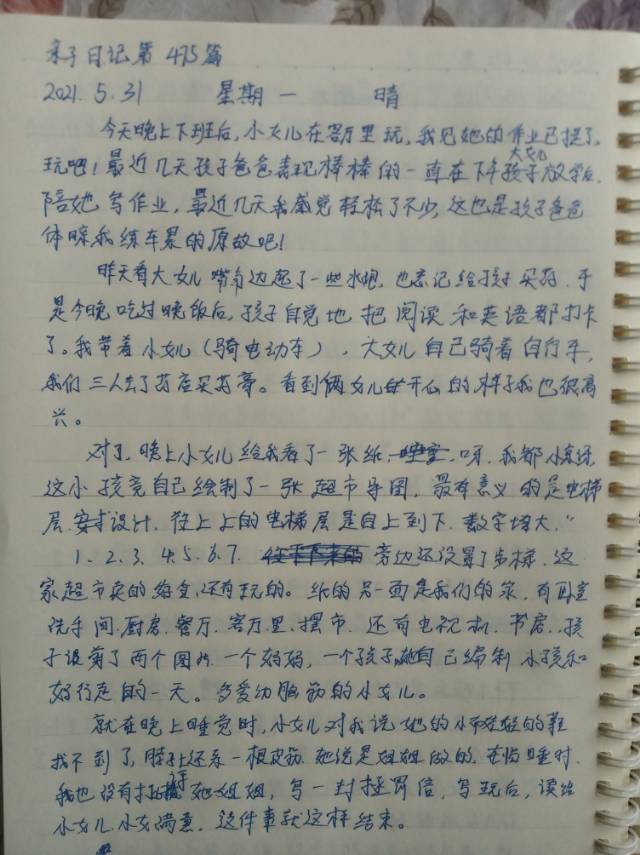 亲子日记第475篇
2021.5.31 星期一 晴
今天晚上下班后,小女儿在客厅里玩,我见她的作业已捏了,
玩吧!最近几天孩子爸爸表现棒棒的一直在下午大女儿孩子放学后
陪她写作业,最近几天我感觉轻松了不少,这也是孩子爸爸
体谅我练车累的原故吧!
昨天看大女儿嘴角边起了一些水炮,也忘记给孩子买药.于
是今晚吃过晚饭后,孩子自觉地把阅读和英语都打卡
了。我带着小女儿(骑电动车),大女儿自己骑着自行车,
我们三人去了药店买药膏。看到俩女儿开心的样子我也很高
兴。
对了,晚上小女儿给我看了一张纸,呀,我都
这小孩竟自己绘制了一张超市导图,最有意义的是电梯
层设计.往上上的电梯层是自上到下.数字增大."
1.2.3.4.5.6.7. 旁边还设置了步梯.这
家超市卖的给食,还有玩的。纸的另一面是我们的家,有卧室
洗手间.厨房.餐厅.客厅里.摆市.还有电视机.书房.孩
子设剪了两个图片.一个妈妈,一个孩子,她自己编制小孩和
妈行走的一天。多爱动脑筋的小女儿。
就在晚上睡觉时,小女儿对我说她的小的鞋
找不到了,脖上还系一根皮筋.她说是姐姐做的.在临睡时.
我也没有她姐姐,写一封信,写玩后,读给
小女儿小女满意.这件事就这样结束。